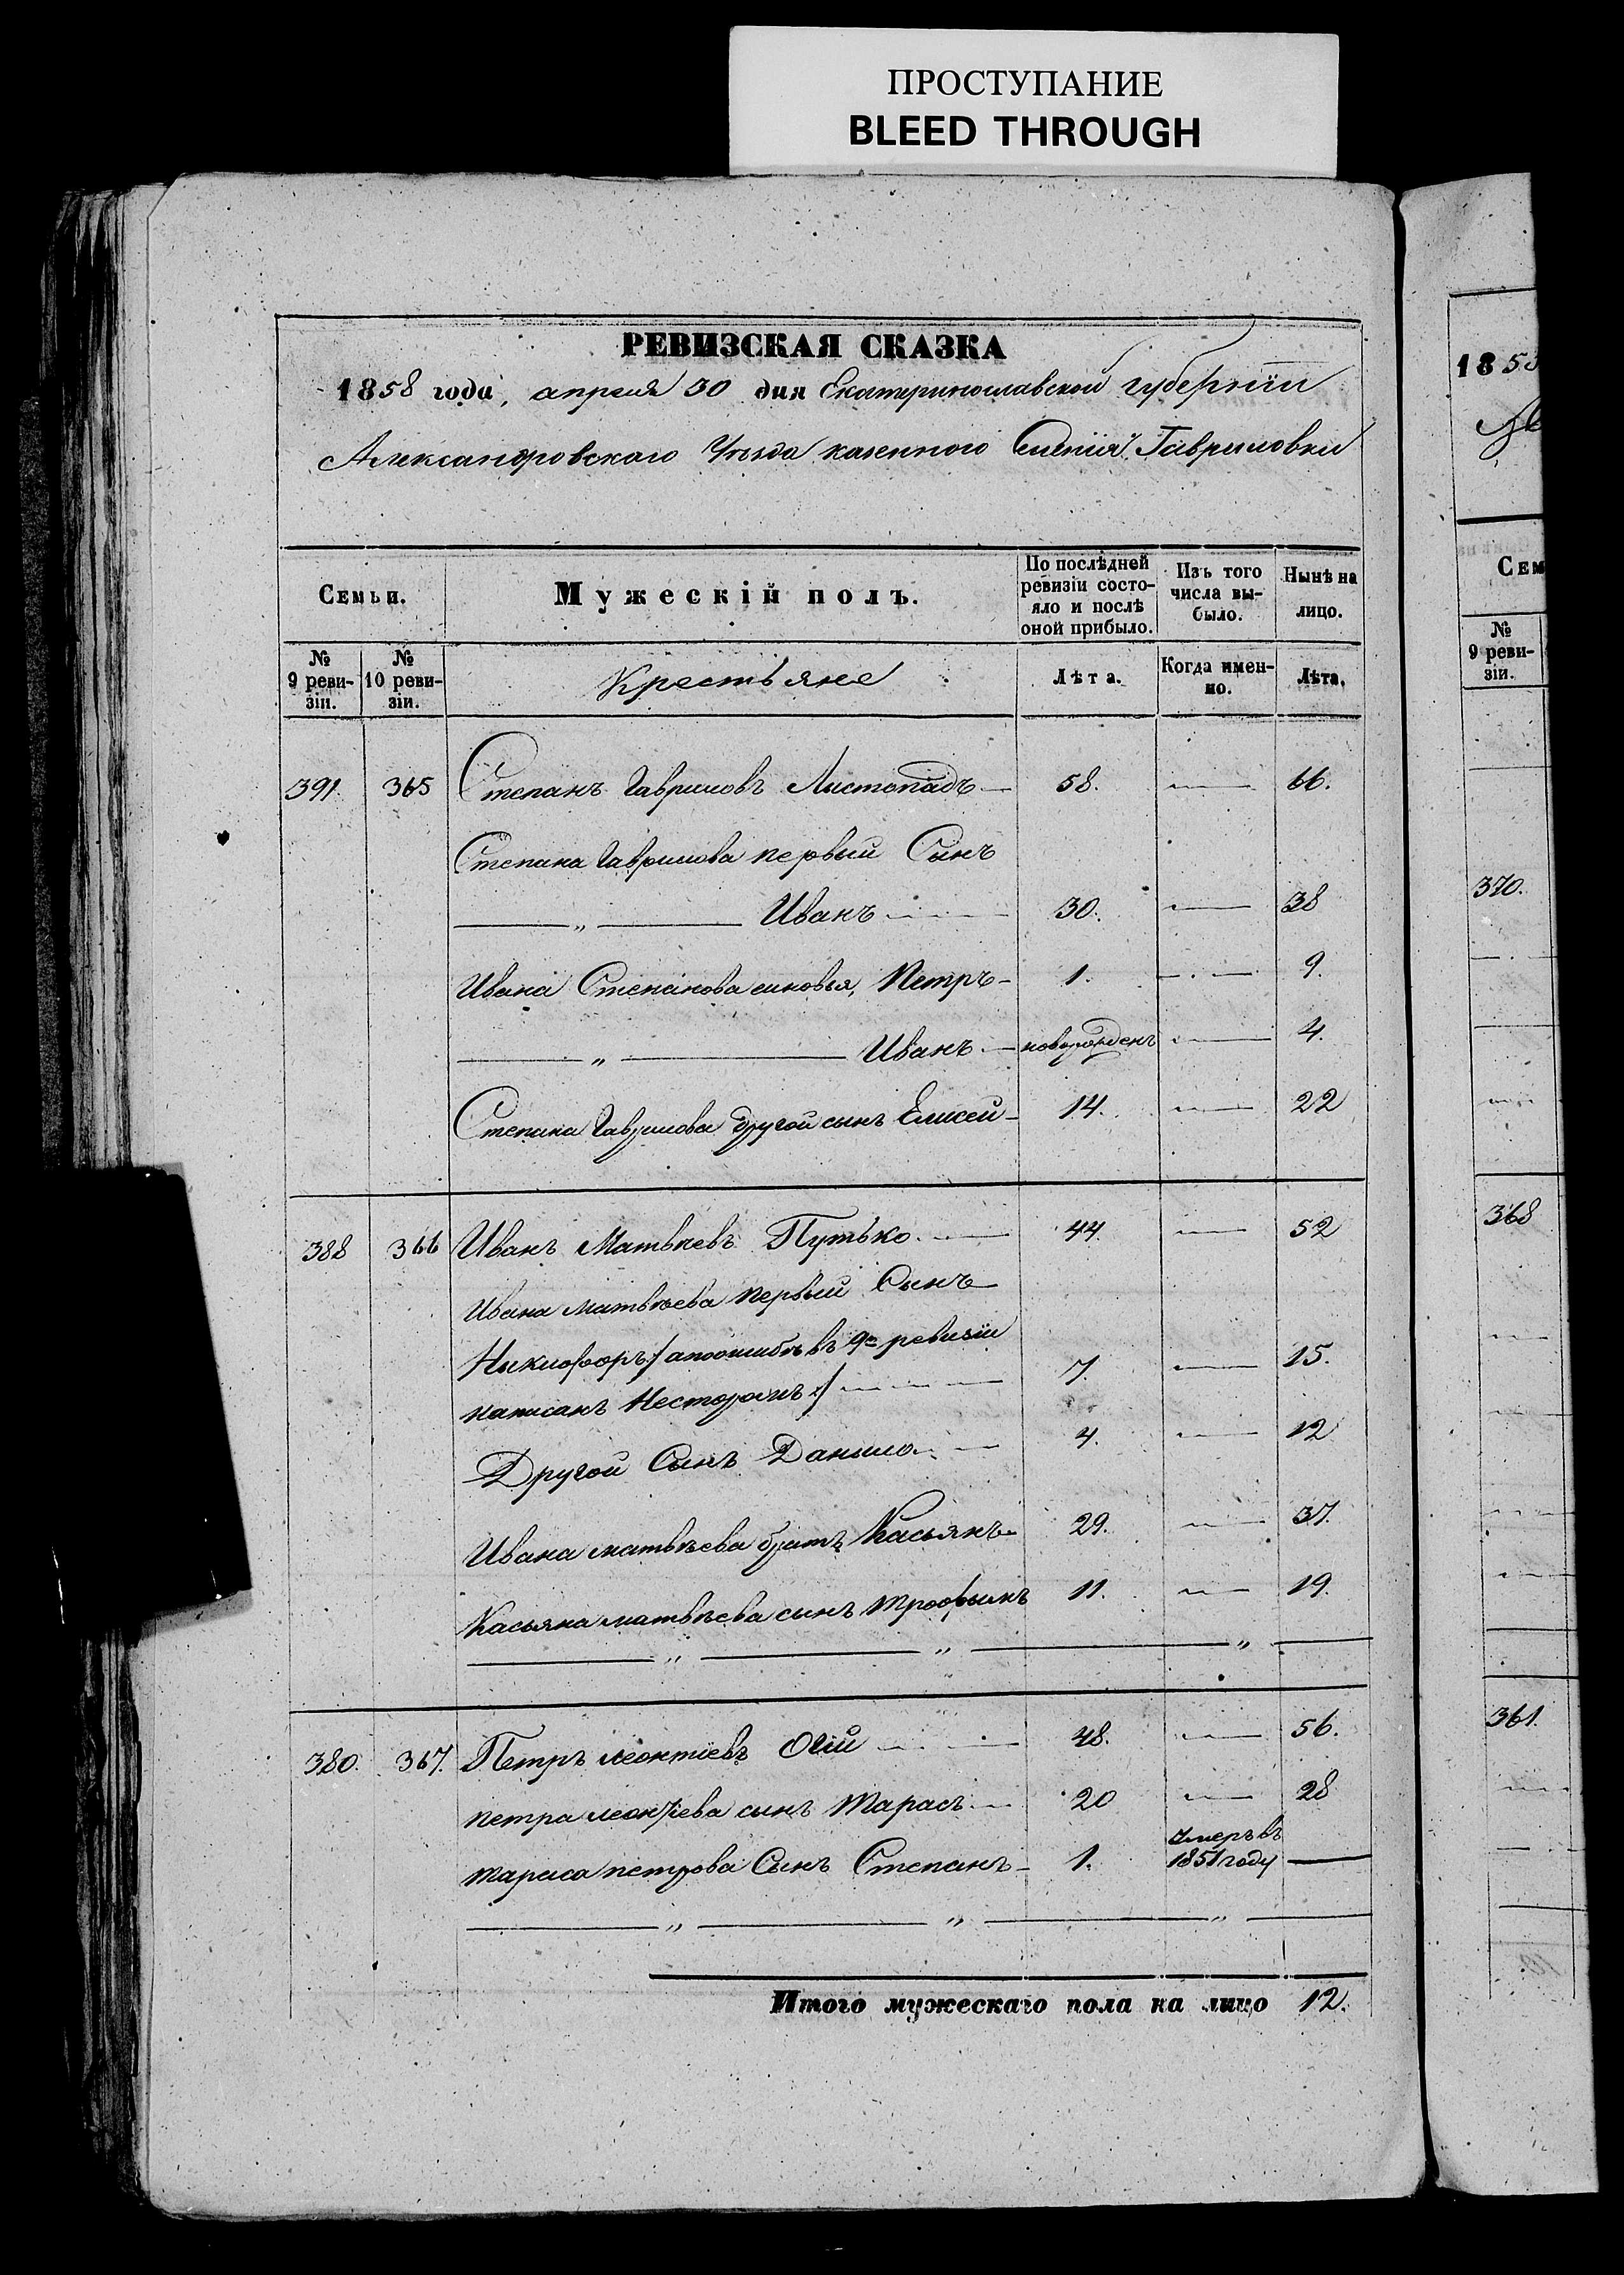 ПРОСТУПАНИЕ
BLEED THROUGH
РЕВИЗСКАЯ СКАЗКА
1858 года, апреля 30 дня Екатеринославской губернiи
Александровскаго Уѣзда казенного Селенiя Гавриловки
Семьи.
Мужескiй полъ.
По послѣдней ревизiи состо-
яло и послѣ
оной прибыло.
Изъ того
числа вы-
было.
Нынѣ на
лицо.
№
9 реви-
зiи.
№
10 реви-
зiи.
Крестьяне
Лѣта.
Когда имен-
но.
Лѣта.
391. 365 Степанъ Гавриловъ Листопадъ — 58. — 66.
Степана Гаврилова первый Сынъ
— „ — Иванъ — 30. — 38
Ивана Степанова сыновья, Петръ — 1. — 9.
— „ — Иванъ — новорожденъ — 4.
Степана Гаврилова другой сынъ Елисей — 14. — 22
388 366 Иванъ Матвѣевъ Путько — 44. — 52
Ивана матвѣева первый Сынъ
Никифоръ/ апоошибкѣ въ 9й ревизiи
написанъ Несторомъ/ — 7. — 15.
Другой Сынъ Данило — 4. — 12
Ивана матвѣева братъ Касьянъ — 29. — 37.
Касьяна матвѣева сынъ трофымъ 11. — 19.
— „ — „ — „ —
380. 367. Петръ леонтiевъ — 48. — 56.
петра леонтiева сынъ Тарасъ — 20 — 28
тараса петрова Сынъ Степанъ — 1. Умеръ въ
1851 году —
— „ — „ — „ —
Итого мужескаго пола на лицо 12.
185
Сем
№
9 реви-
зiи.
370.
368
361.